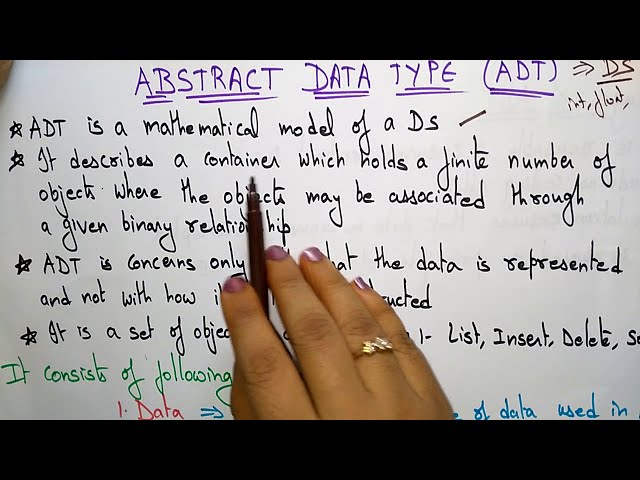 ABSTRACT DATA TYPE (ADT) ⇒ DS
int, float,
☆ ADT is a mathematical model of a DS
☆ It describes a container which holds a finite number of
objects where the objects may be associated through
a given binary relationship
☆ ADT is concerns only that the data is represented
and not with how it
☆ It is a set of objec :- List, Insert, Delete,
It consists of following
1. Data ⇒ of data used in